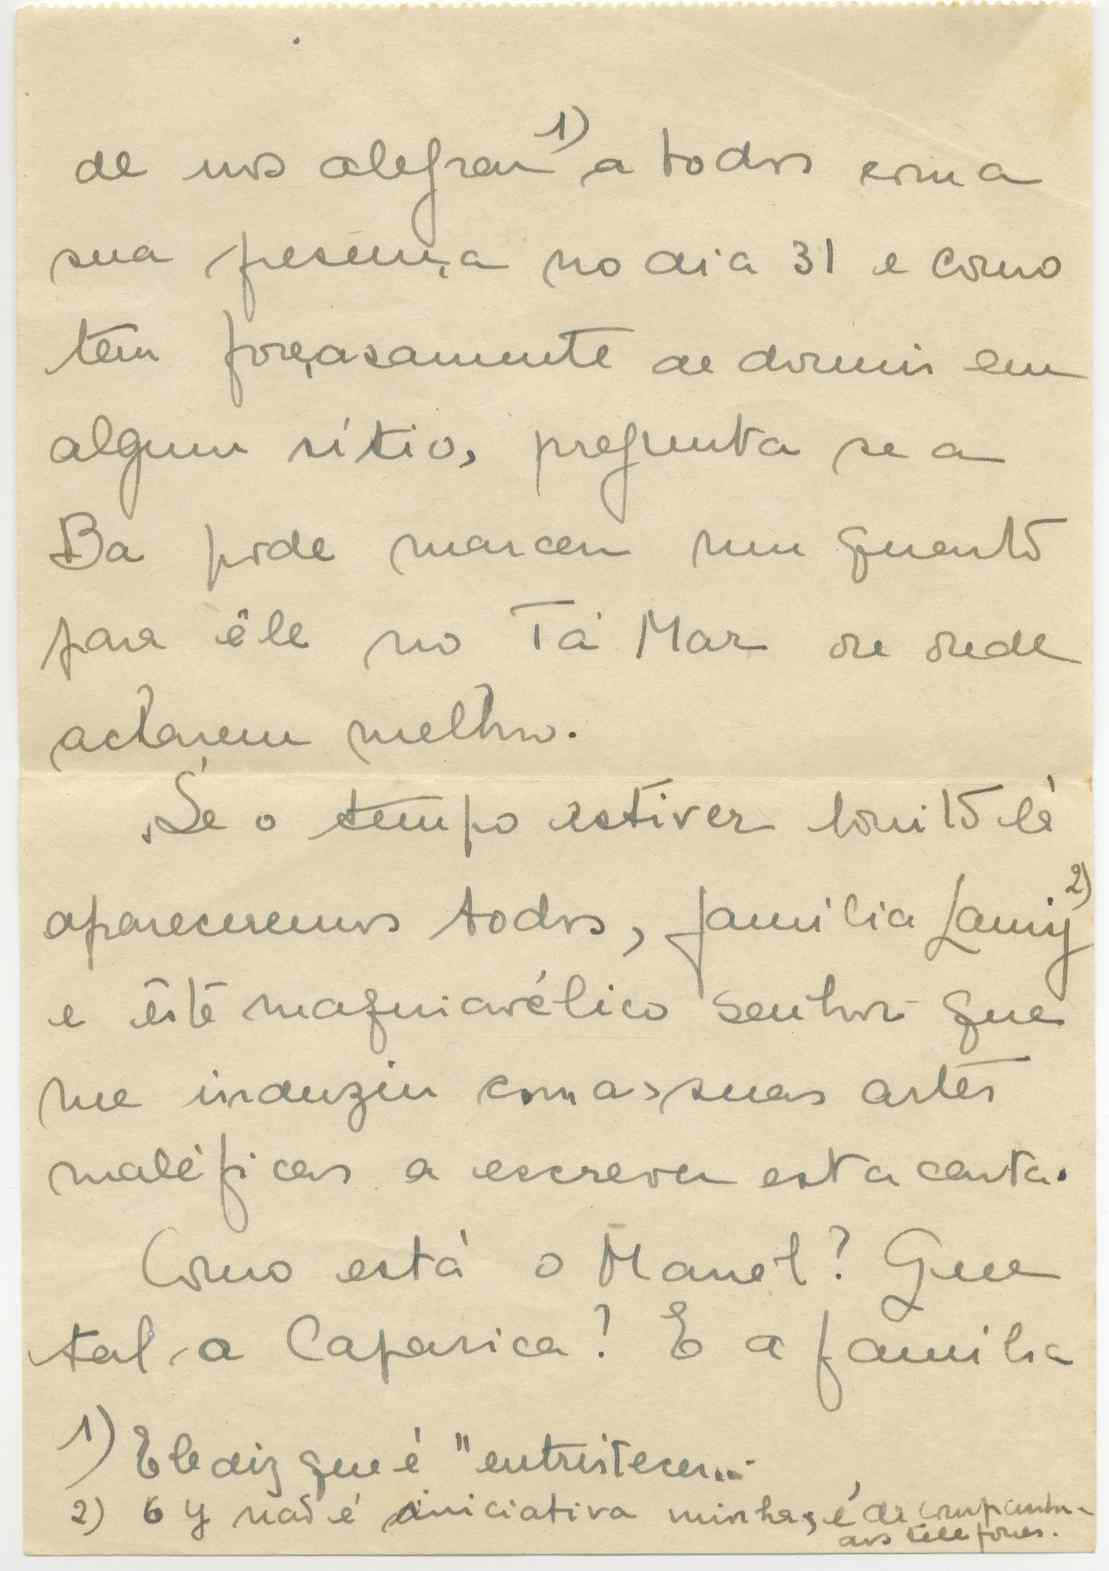 de nos alegrar 1) a todos com a
sua presença no dia 31 e como
tem forçosamente de dormir em
algum sítio, pregunta se a
Ba pode marcar um quarto
para êle no Tá Mar ou onde
acharem melhor.
Se o tempo estiver bonito lá
apareceremos todos, familia Lamy 2)
e êste maquiavélico senhor que
me induziu com as suas artes
maléficas a escrever esta carta.
Como está o Manel? Que
tal a Caparica? E a familia
1) Ele diz que é "entristecer...
2) O y não é iniciativa minha, é da
aos telefones.